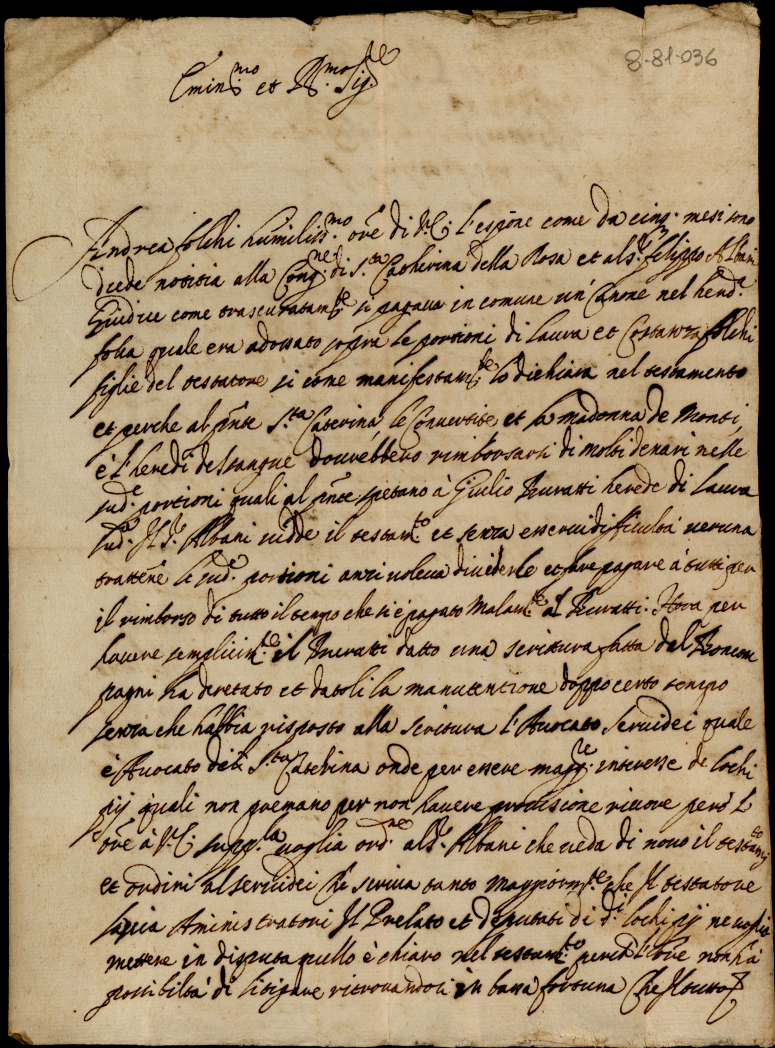 8-81-036
Emin.mo et R.mo Sig.re
Andrea folchi humiliss.mo ore di V.E. l'espone come da cinq. mesi sono
diede notitia alla Cong.ne di S.ta Catherina della Rosa et al S.r filippo Albani
Giudice come trascuratam.te si pagava in comune un' Canone nel hered.a
folca quale era adossato sopra le portioni di Laura et Costanza folchi
figlie del testatore si come manifestam.te lo dichiara nel testamento
et perche al pnte S.ta Caterina, le Convertite et la madonna de Monti,
è l'heredi desangue dourebbero rimborsarsi di molti denari nelle
sud.e portioni quali al pnte spetano à Giulio Buratti herede di Laura
sud.a Il S.r Albani vidde il testam.to et senza esservi dificultà veruna
trattene le sud.e portioni anzi voleva dividerle et fare pagare à tutti per
il rimborso di tutto il tempo che si è pagato malam.te al Buratti. Hora per
havere semplicim.te il Buratti datto una scrittura fatta dal Boncom
pagni ha decretato et datoli la manutentione doppo certo tempo
senza che habbia risposto alla scritura l'Avocato Servidei quale
è Avocato della S.ta Catehina onde per essere magg.re interesse de lochi
pij quali non premano per non havere provisione ricorre però l'
ore à V.E. supp.la voglia ord.ne al S.r Albani che veda di novo il testam.to
et ordini al Servidei che scriva tanto maggiorm.te che Il testatore
lascia Aministratori Il Prelato et deputati di d.i lochi pij ne voglia
mettere in disputa quello è chiaro nel testam.to perche l'ore non hà
possibiltà di litigare ritrovandosi in bassa fortuna Che Il tutto